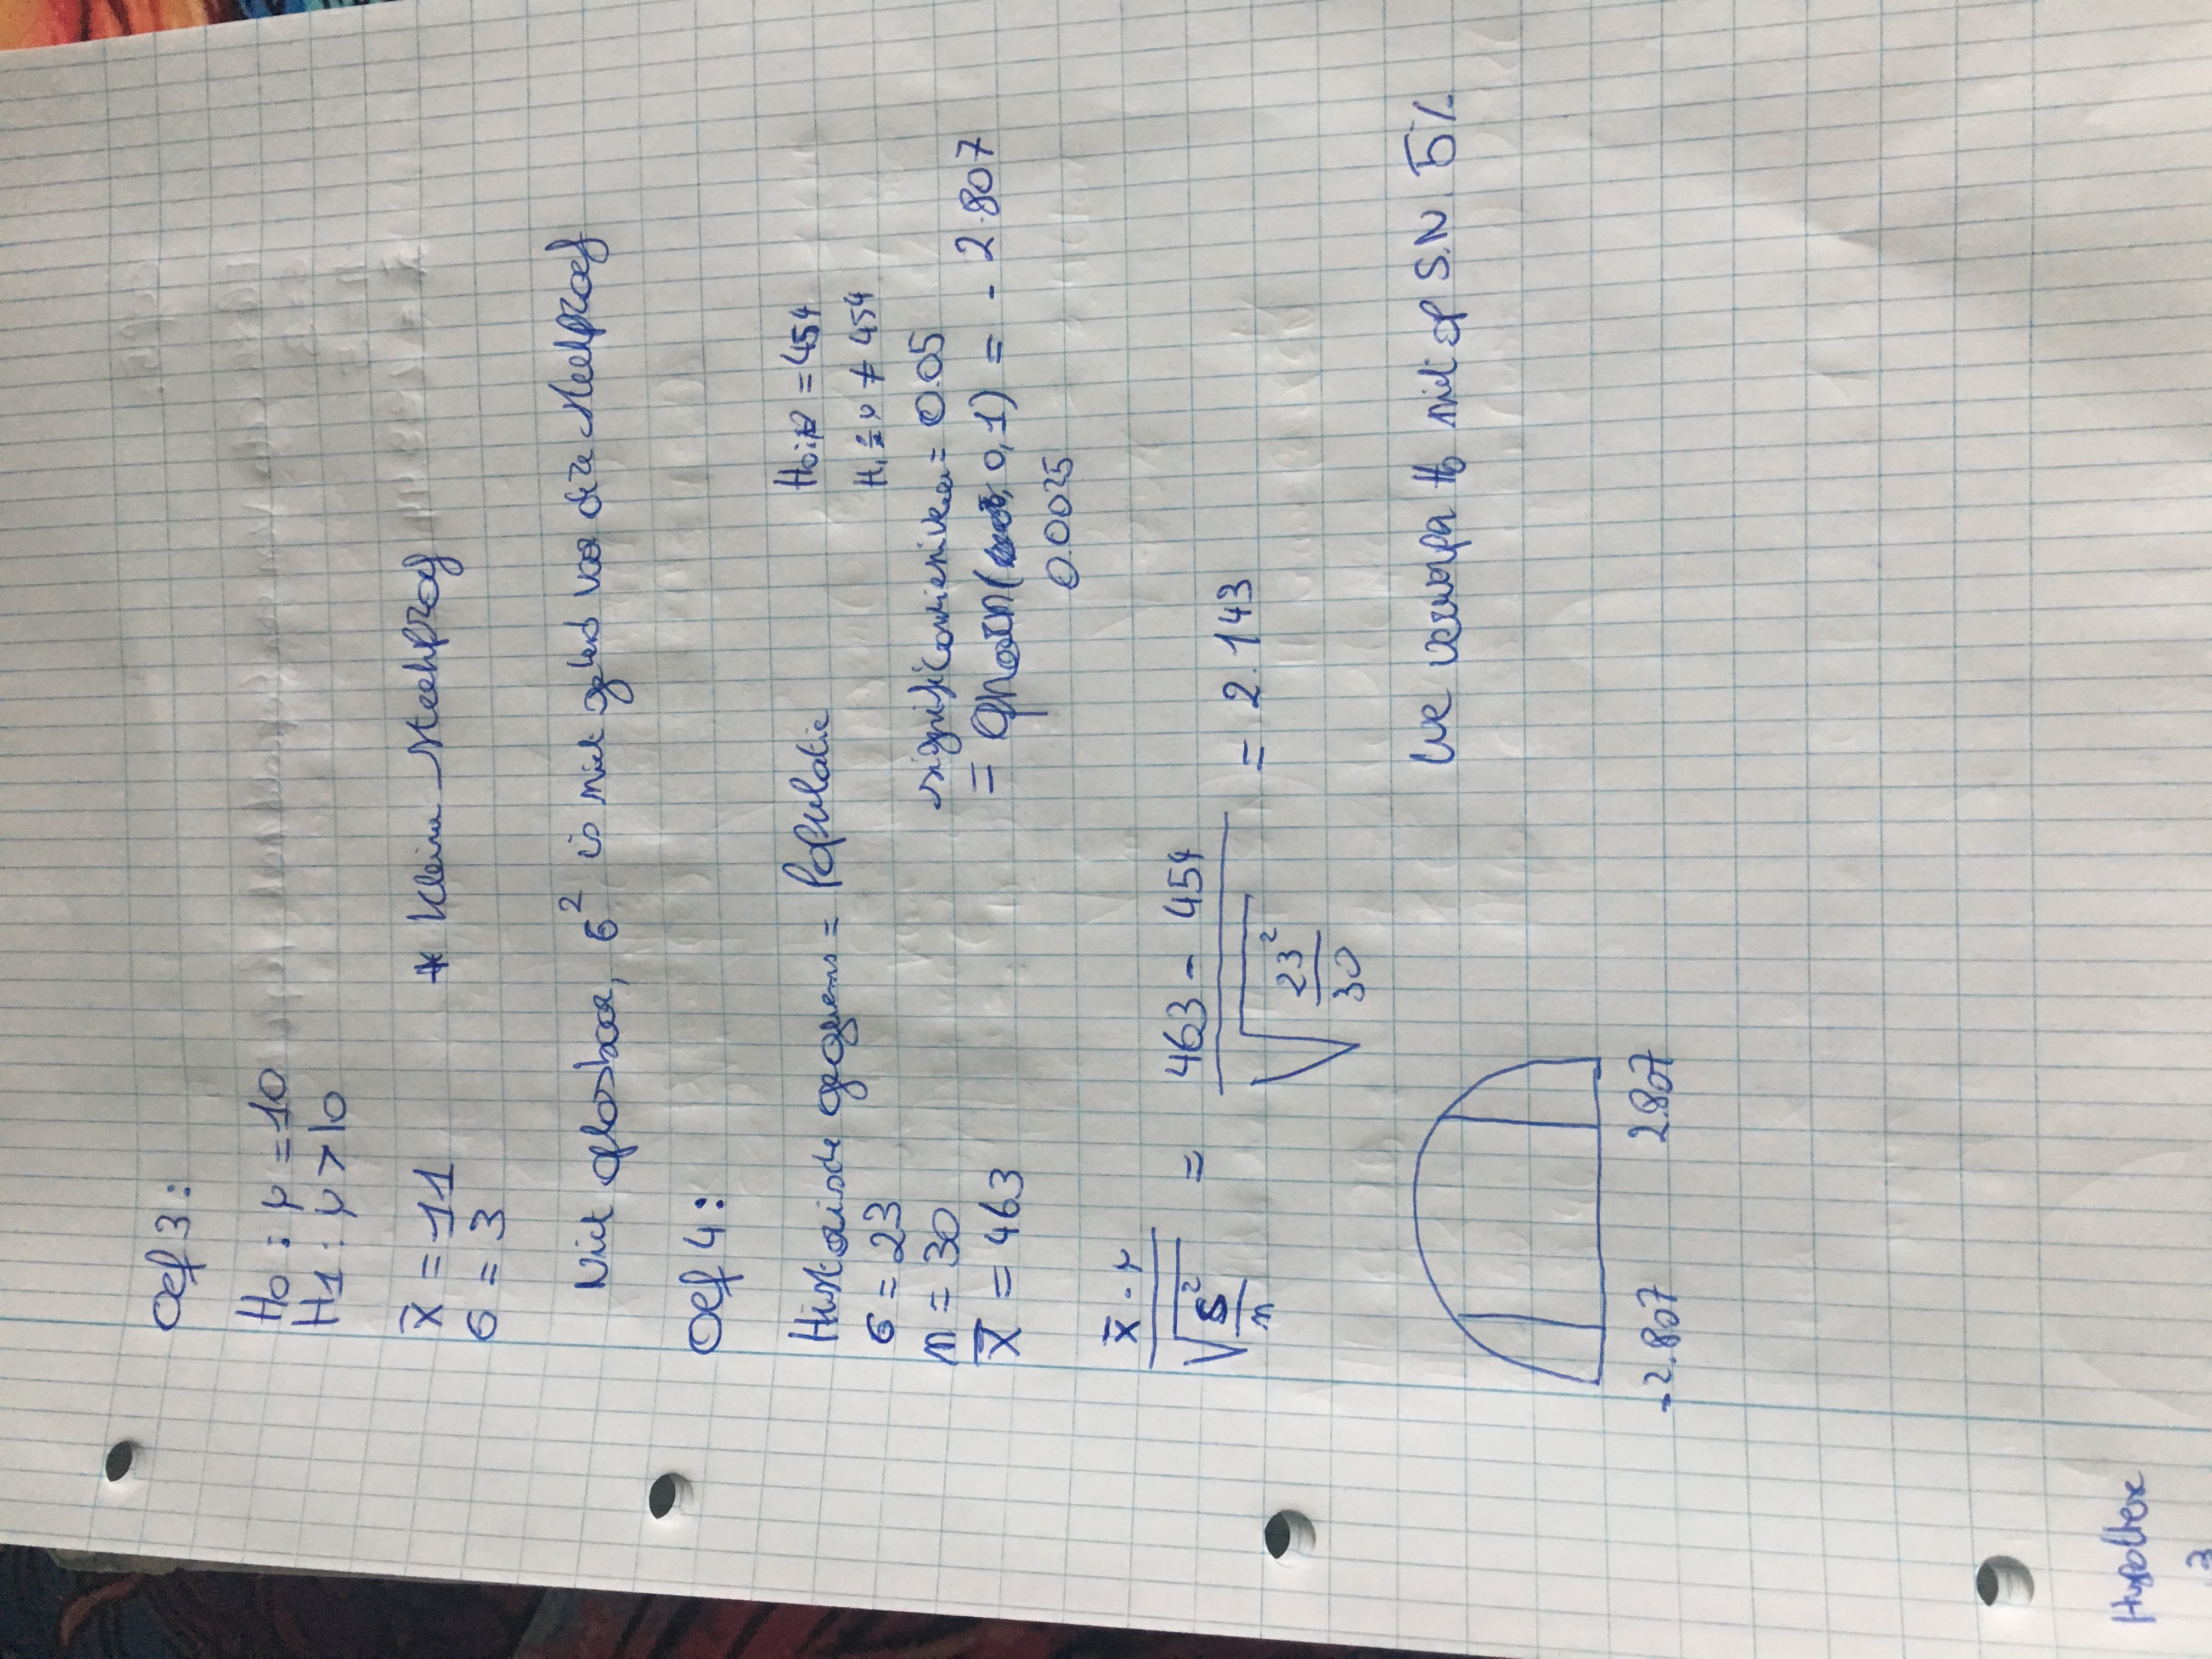 Oef 3:
H0 : μ = 10
H1 : μ > 10
x̄ = 11 * Kleine steekproef
σ = 3
Niet oplosbaar, σ² is niet geleerd voor deze steekproef
Oef 4:
Historische gegevens = Populatie
σ = 23
n = 30
x̄ = 463
H0: μ = 454
H1: μ ≠ 454
significantieniveau = 0.05
= qnorm( 0,1) = - 2.807
0.0025
(x̄ - μ) / √(s²/n) = (463 - 454) / √(23²/30) = 2.143
We verwerpen H0 niet op S.N. 5%
-2.807 2.807
Hypothese
3